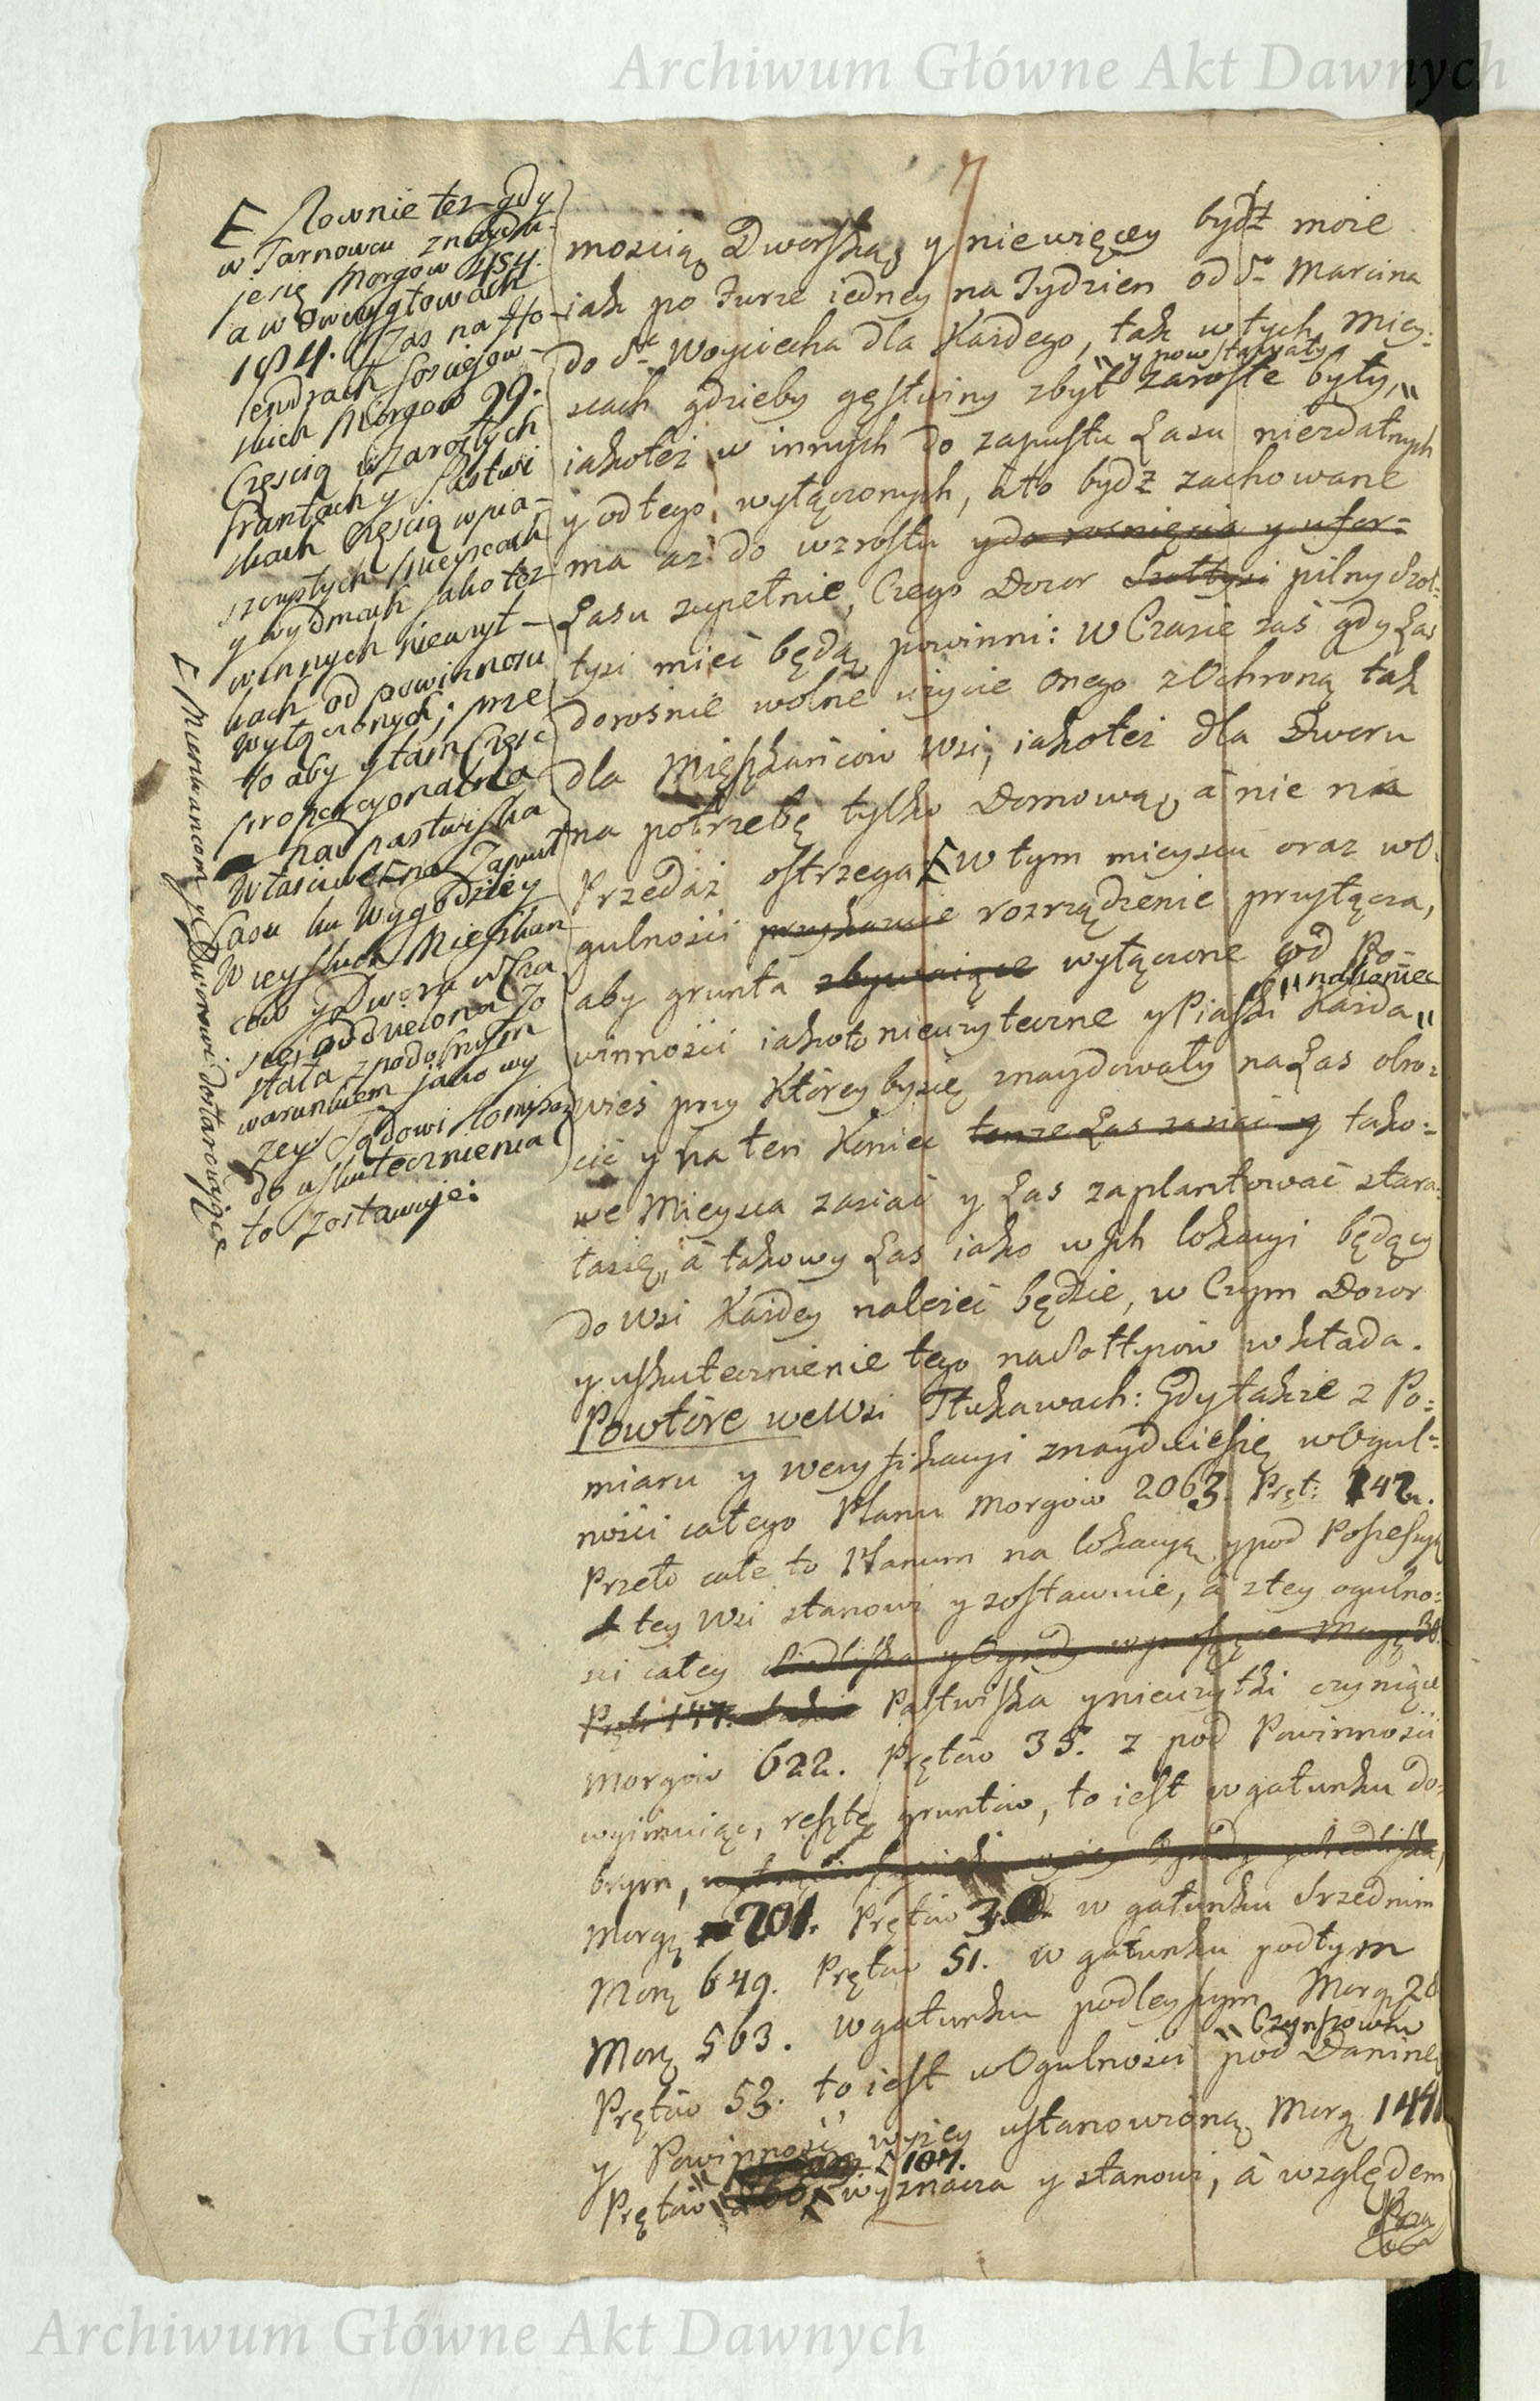 Archiwum Główne Akt Dawnych
7
E Rownie tez gdy
w Tarnowcu znaydu-
je się Morgow 454.
a w Owczygłowach
194. Zas na Ho-
lendrach Sosiegow-
skich Morgow 99.
Częscią w zarosłych
Grantach y Pastwi
skach Częscią w pia-
szczystych Mieyscach
y wydmach jako tez
w innych nieuzyt-
kach od powinnosci
wyłączonych; prze
to aby y tam Częsc
proporcyonalna
nad pastwiska
własciwe na Zapust
Lasu ku wygodzie
Wieyskich Mieszkan
cow y Dwora w Cza
sie oddzielona Zo
stała z podobnym
warunkiem jako wy
zey Sądowi Komisar:
do uskutecznienia
to zostawuje:
E Mieszkancom y Dworowi dostarczające
moscią Dworską y niewięcey bydź może
iak po Furze iedney na Tydzien od Sgo Marcina
do Sgo Woyciecha dla Każdego, tak w tych miey:
y powstawały
scach gdzieby gęstwiny zbyt zarosłe były,
iakoteż w innych do zapustu Lasu niezdatnych
y od tego wyłączonych, a to bydz zachowane
ma aż do wzrostu y do rosnięcia y ufor=
Lasu zupełnie, Czego Dozor Szołtysi pilny Szoł:
tysi mieć będą powinni: w Czasie zaś gdy Las
dorosnie wolne użycie onego z Ochroną tak
dla Mięszkańców Wsi, iakoteż dla Dworu
na potrzebę tylko Domową, a nie na
Przedaż ostrzega E w tym mieyscu oraz wO:
gulności przykazuie rozrządzenie przyłącza,
aby grunta zbywaiące wyłączone od Po=
na koniec
winności iakoto nieuzyteczne y Piaski Każda
wieś przy Którey by się znaydowały na Las obro:
cić y na ten Koniec tenze Las zasiać y tako:
we Mieysca zasiać y Las zaplantować stara:
ła się, a takowy Las iako w ich lokacyi będący
do Wsi Każdey należeć będzie, w Czym Dozor
y uskutecznienie tego na Sołtysow wkłada.
Powtóre we Wsi Tłukawach: Gdy także z Po:
miaru y weryfikacyi znayduie się w Ogul=
ności całego Planu Morgow 2063. Pręt: 142.
Przeto całe to Planum na lokacyą y pod Possessyą
tey Wsi stanowi y zostawuie, a z tey ogulno:
ści całey Siedliska y Ogrody wynoszące Morg: 30.
Pręt: 147. także Pastwiska y nieuzytki czyniące
Morgow 622. Prętow 35. z pod Powinności
wyimuiąc, resztę gruntow, to iest w gatunku do:
brym,
Morg: 201. Prętow w gatunku Srzednim
Morg: 649. Prętow 51. w gatunku podłym
Morg: 563. w gatunku podleyszym Morg: 28
Czynszową
Prętow 53. to iest w Ogulności pod Daninę
y Powinność wyżey ustanowioną Morg: 1441
107.
Prętow wyznacza y stanowi, a względem
Archiwum Główne Akt Dawnych